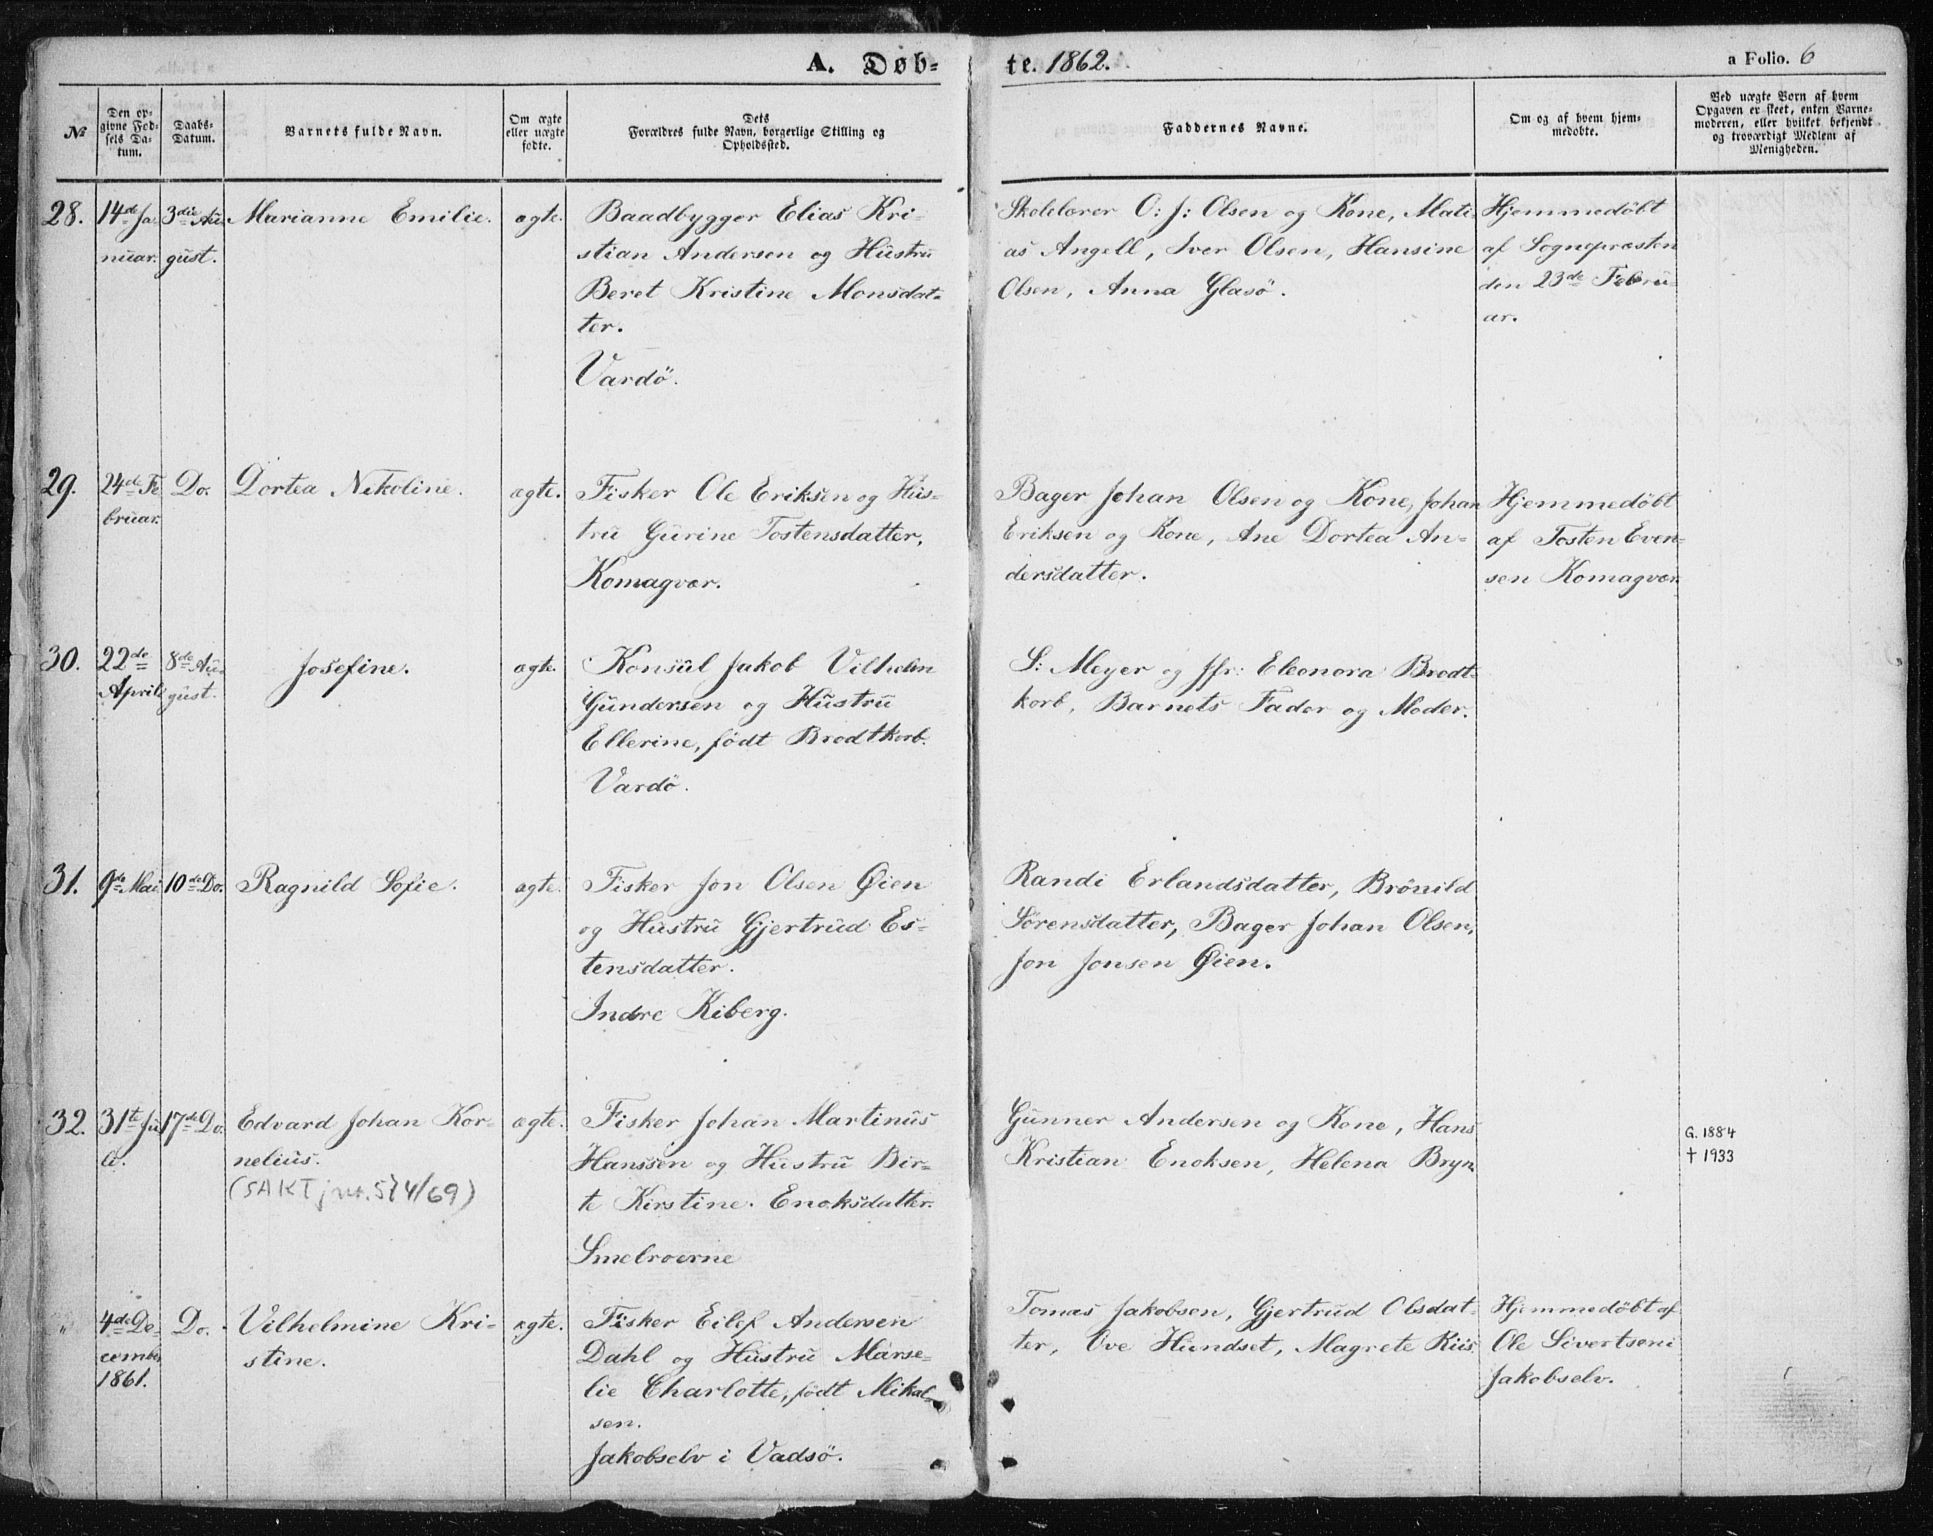 A. Døb-
te. 1862.
a Folio. 6
№
Den op-
givne Fød-
sels Da-
tum.
Daabs-
Datum.
Barnets fulde Navn.
Om ægte
eller uægte
fødte.
Dets
Forældres fulde Navn, borgerlige Stilling og
Opholdssted.
Faddernes Navne.
Om og af hvem hjem-
medøbte.
Ved uægte Børn af hvem
Opgaven er skeet, enten Barne-
moderen, eller hvilket bekjendt
og troværdigt Medlem af
Menigheden.
28.
14de Ja-
nuar.
3die Au-
gust.
Marianne Emilie.
ægte.
Baadbygger Elias Kri-
stian Andersen og Hustru
Beret Kristine Monsdat-
ter.
Vardö.
Skolelærer O: J: Olsen og Kone, Mati-
as Angell, Iver Olsen, Hansine
Olsen, Anna Glasö.
Hjemmedöbt
af Sognepræsten
den 23de Febru-
ar.
29.
24de Fe-
bruar.
Do.
Dortea Nikoline.
ægte.
Fisker Ole Eriksen og Hus-
tru Gurine Tostensdatter,
Komagvær.
Bager Johan Olsen og Kone, Johan
Eriksen og Kone, Ane Dortea An-
dersdatter.
Hjemmedöbt
af Tosten Even-
sen Komagvær.
30.
22de
April
8de Au-
gust.
Josefine.
ægte.
Konsul Jakob Vilhelm
Gundersen og Hustru
Ellerine, födt Brodtkorb.
Vardö.
S: Meyer og Jfr: Eleonora Brodt-
korb, Barnets Fader og Moder.
31.
9de Mai
10de Do.
Ragnild Sofie.
ægte.
Fisker Jon Olsen Øien
og Hustru Gjertrud Es-
tensdatter.
Indre Kiberg.
Randi Erlandsdatter, Brönild
Sörensdatter, Bager Johan Olsen,
Jon Jonsen Øien.
32.
31te Ju-
li.
17de Do.
Edvard Johan Kor-
nelius.
(SAKT jnr. 574/69)
ægte.
Fisker Johan Martinus
Hanssen og Hustru Bir-
te Kirstine Enoksdatter.
Smelrorerne
Gunner Andersen og Kone, Hans
Kristian Enoksen, Helena Bryn
G. 1884
† 1933
4de De-
cembr
1861.
Do.
Vilhelmine Kri-
stine.
ægte.
Fisker Eilef Andersen
Dahl og Hustru Marse-
lie Charlotte, födt Mikal-
sen.
Jakobselv i Vadsö.
Tomas Jakobsen, Gjertrud Olsdat-
ter, Ove Hundset, Magrete Kiis.
Hjemmedöbt af
Ole Sivertsen i
Jakobselv.